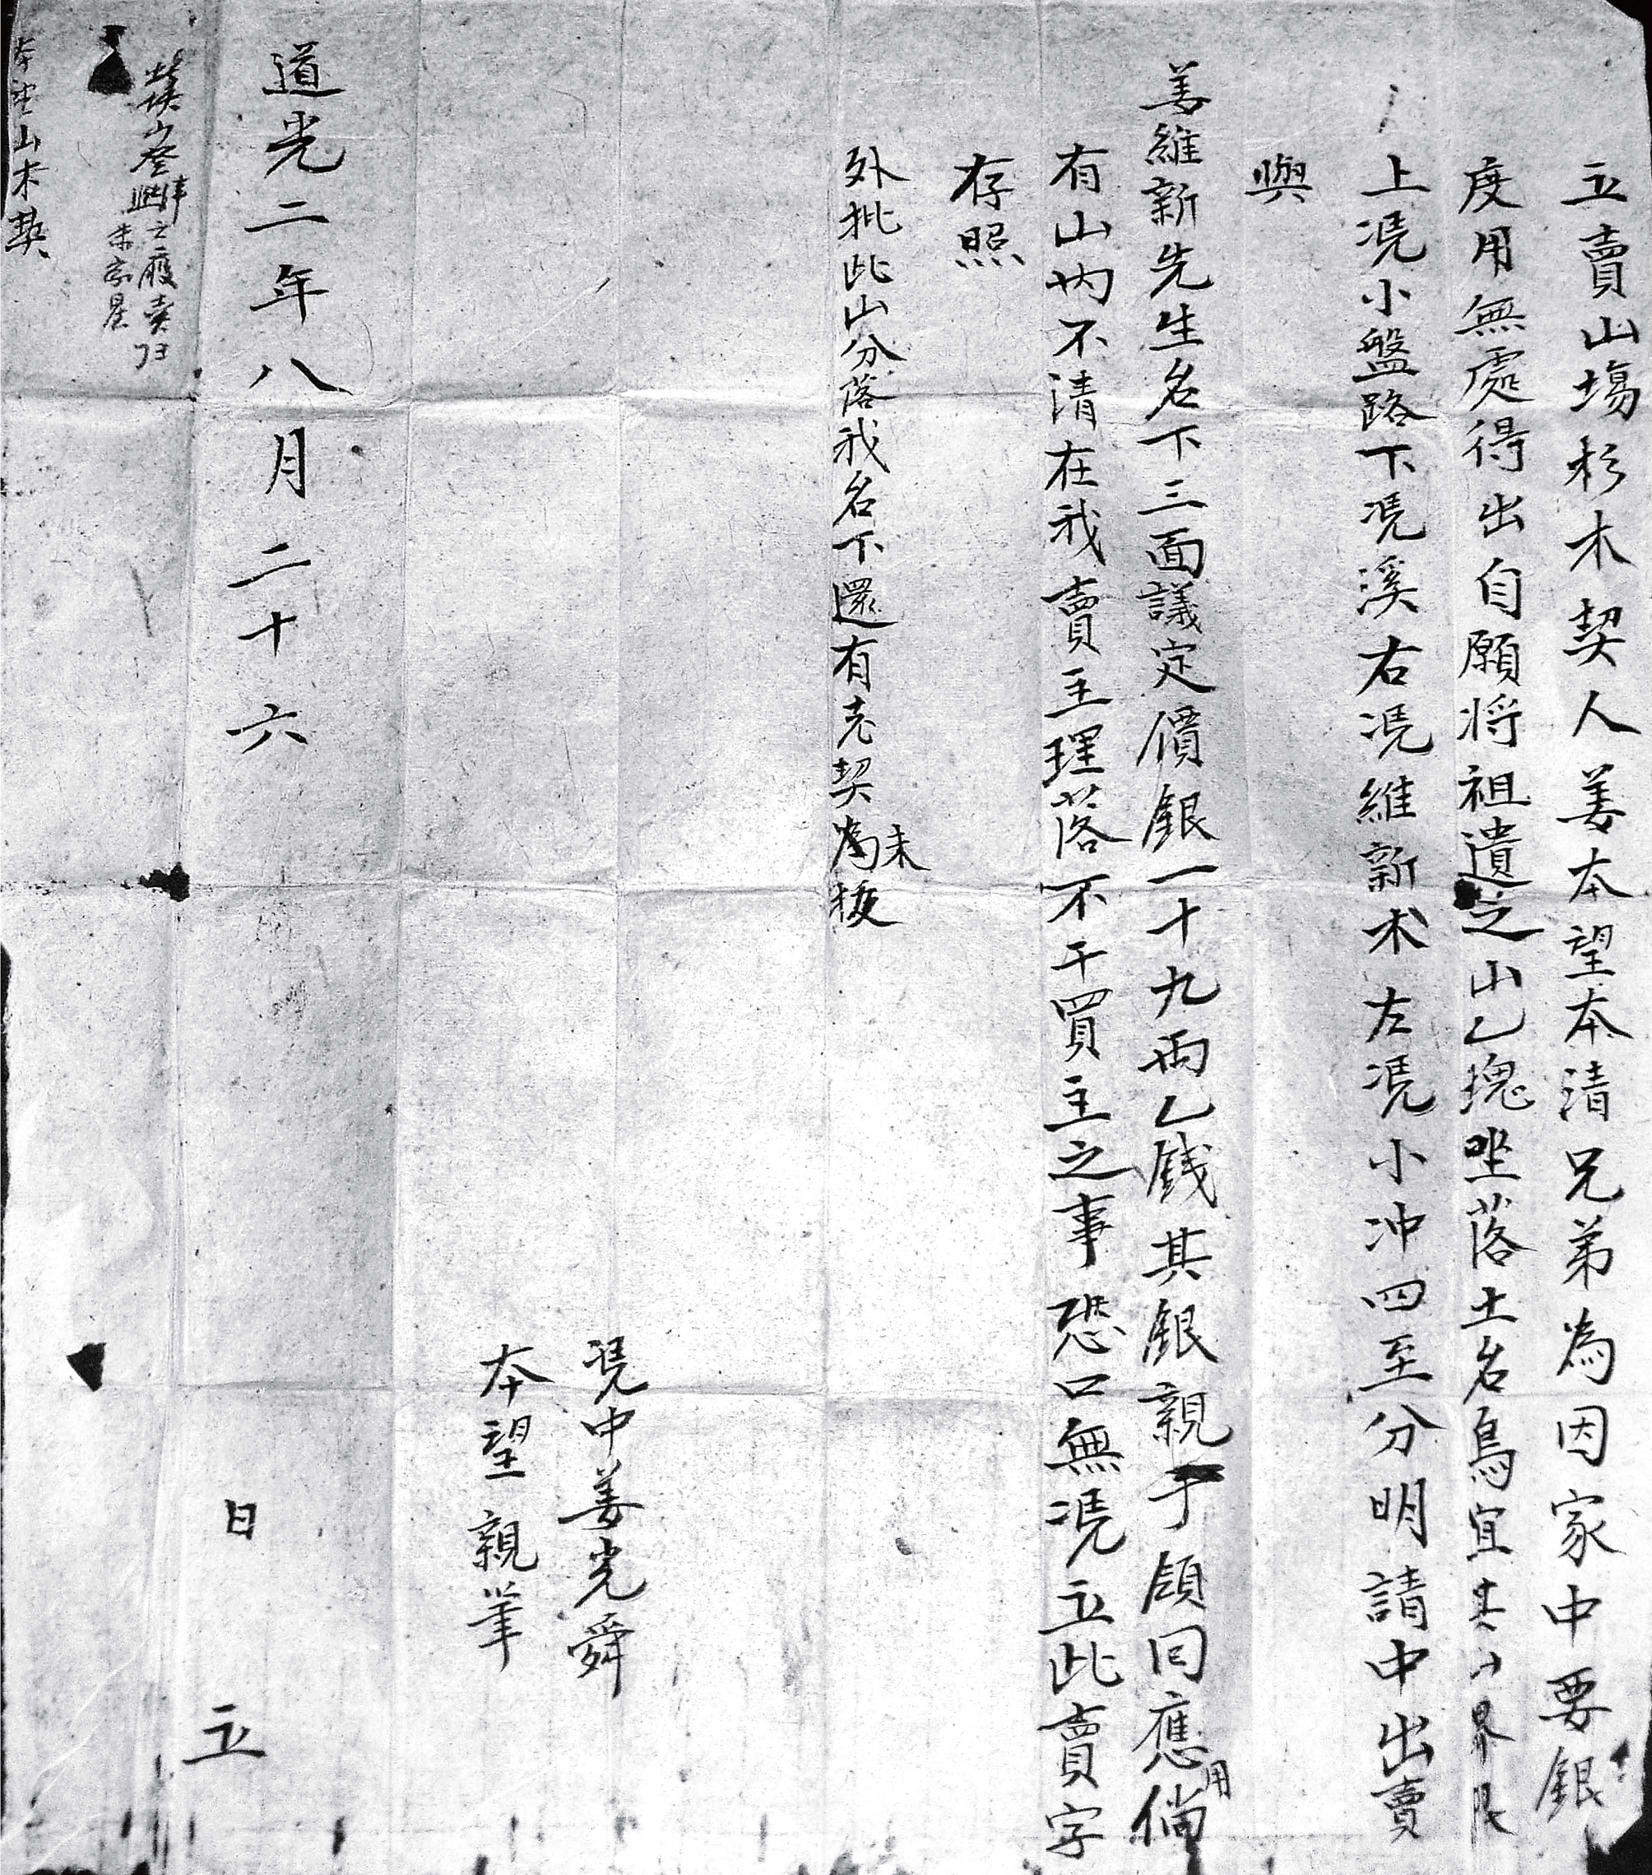 立賣山塲杉木契人姜本望本清兄弟為因家中要銀
度用無處得出自願將祖遺之山乙塊坐落土名鳥宜其山界限
上凴小盤路下凴溪右凴維新木左凴小冲四至分明請中出賣
與
姜維新先生名下三面議定價銀一十九兩乙錢其銀親手領回應用倘
有山內不清在我賣主理落不干買主之事恐口無凴立此賣字
存照
外批此山分落我名下還有老契為未
凴中姜光舜
本望親筆
道光二年八月二十六日立
本望山木契